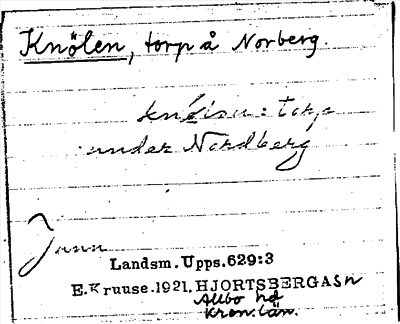 Knölen, torp å Norberg.
: torp
under Nordberg
Landsm.Upps.629:3
E.Kruuse.1921. HJORTSBERGA Sn
Allbo hd
Kron. län.